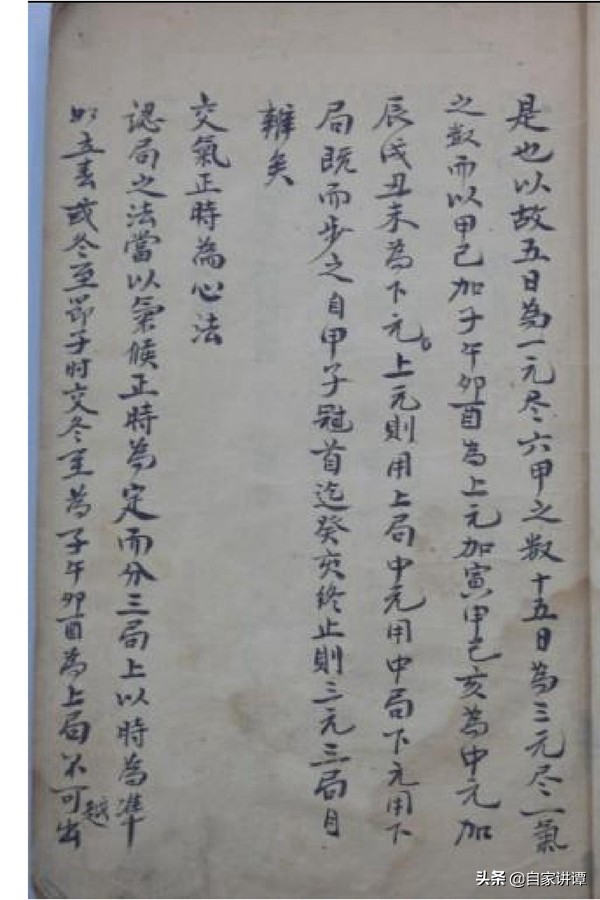 是也以故五日為一元尽六甲之数十五日為三元尽一氣
之数而以甲己加子午卯酉為上元加寅甲己亥為中元加
辰戌丑未為下元。上元則用上局中元用中局下元用下
局既而步之自甲子冠首迄癸亥終止則三元三局自
辨矣
交氣正時為心法
認局之法當以氣候正時為定而分三局上以時為準
如立春或冬至節子时交冬至為子午卯酉為上局不可越出
头条 @自家讲谭